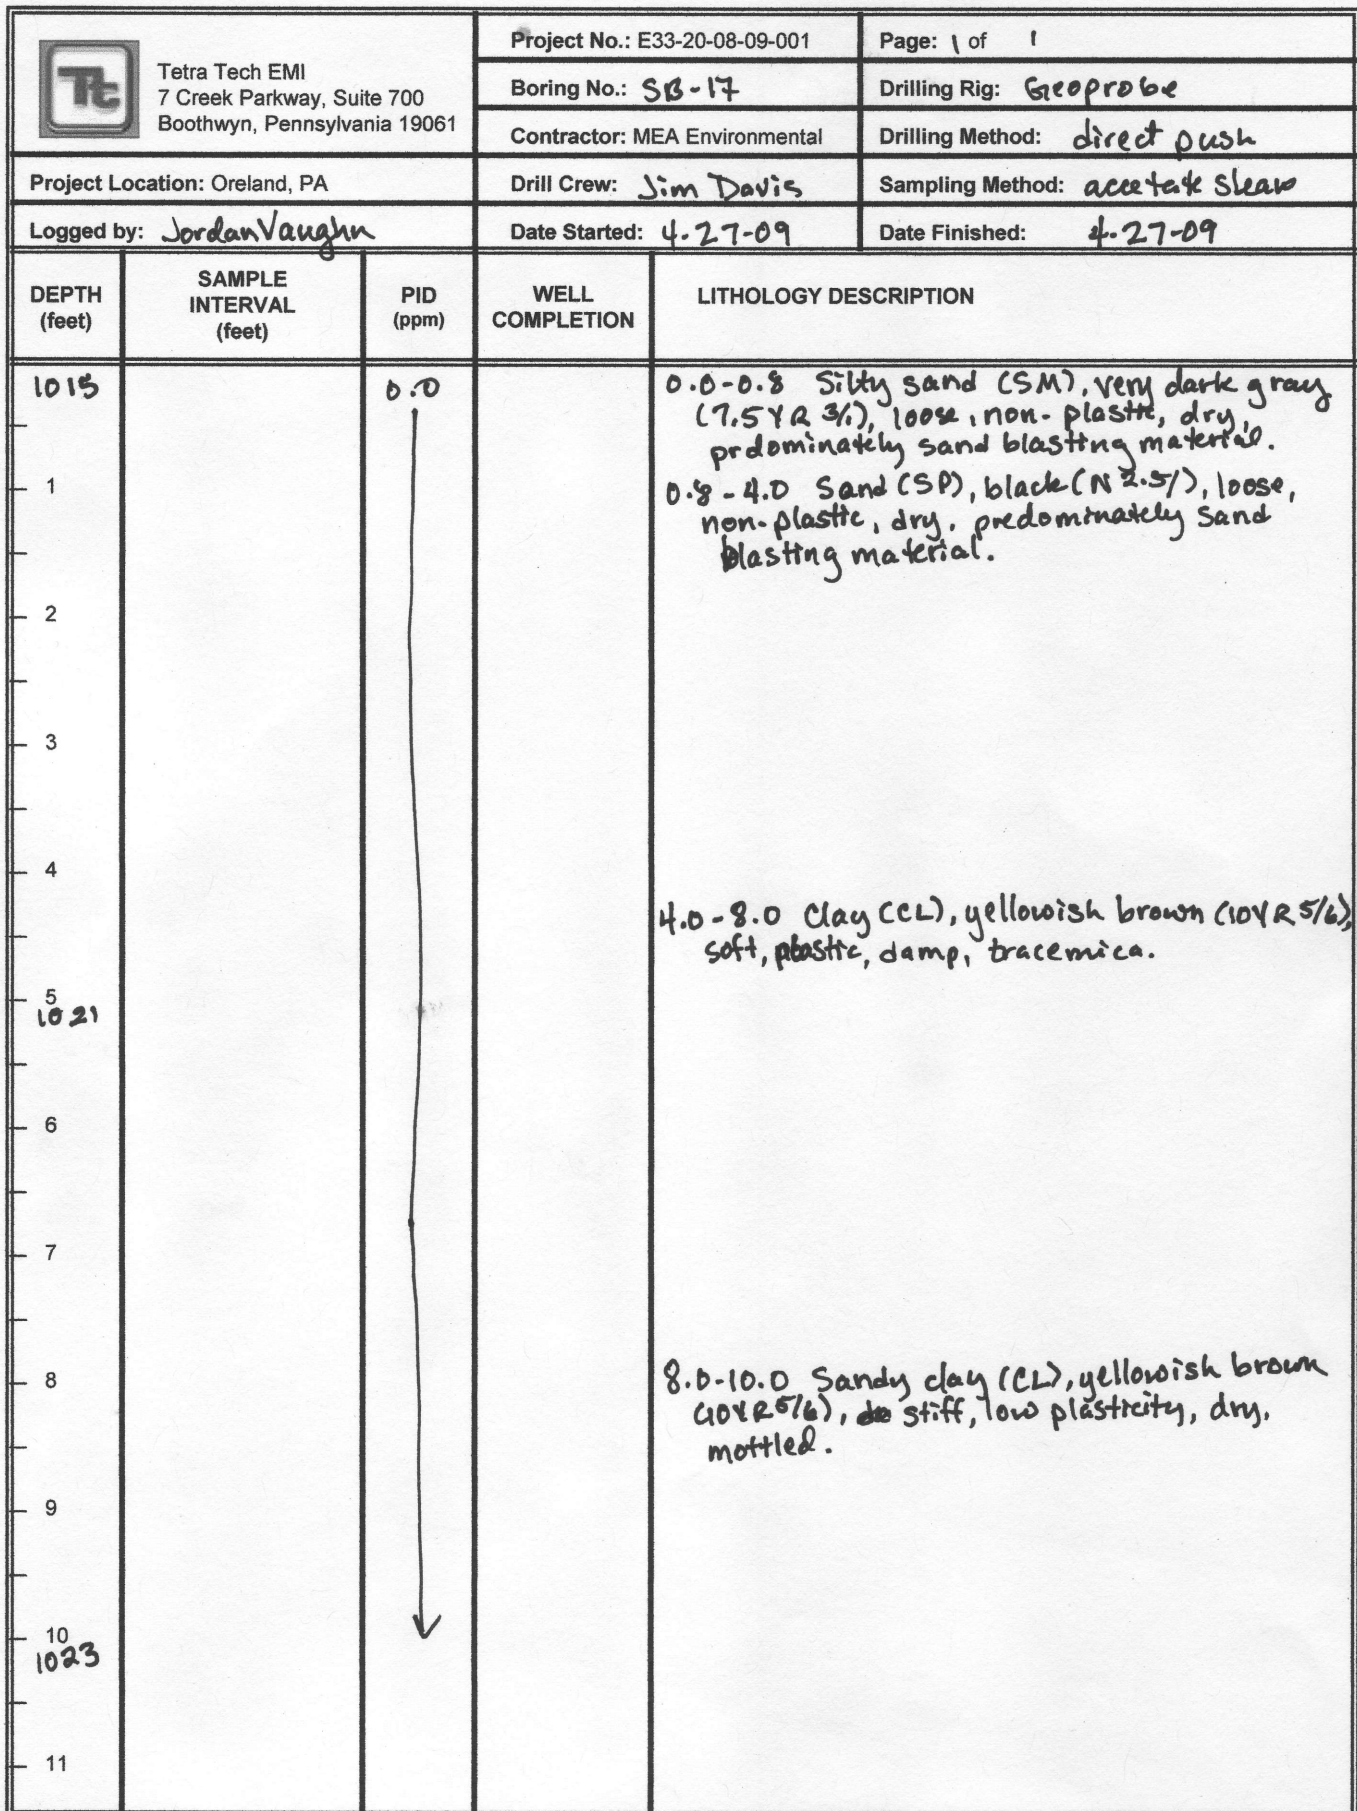 Tt
Tetra Tech EMI
7 Creek Parkway, Suite 700
Boothwyn, Pennsylvania 19061
Project No.: E33-20-08-09-001
Page: 1 of 1
Boring No.: SB-17
Drilling Rig: Geoprobe
Contractor: MEA Environmental
Drilling Method: direct push
Project Location: Oreland, PA
Drill Crew: Jim Davis
Sampling Method: accetate
Logged by: Jordan Vaughn
Date Started: 4-27-09
Date Finished: 4-27-09
DEPTH
(feet)
SAMPLE
INTERVAL
(feet)
PID
(ppm)
WELL
COMPLETION
LITHOLOGY DESCRIPTION
1015
0.0
0.0-0.8 Silty sand (SM), very dark gray
(7.5YR 3/1), loose, non-plastic, dry,
prdominately sand blasting material.
1
0.8-4.0 Sand (SP), black (N 2.5/), loose,
non-plastic, dry, predominately sand
blasting material.
2
3
4
4.0-8.0 Clay (CL), yellowish brown (10YR 5/6),
soft, plastic, damp, trace mica.
5
1021
6
7
8
8.0-10.0 Sandy clay (CL), yellowish brown
(10YR 5/6), stiff, low plasticity, dry,
mottled.
9
10
1023
11